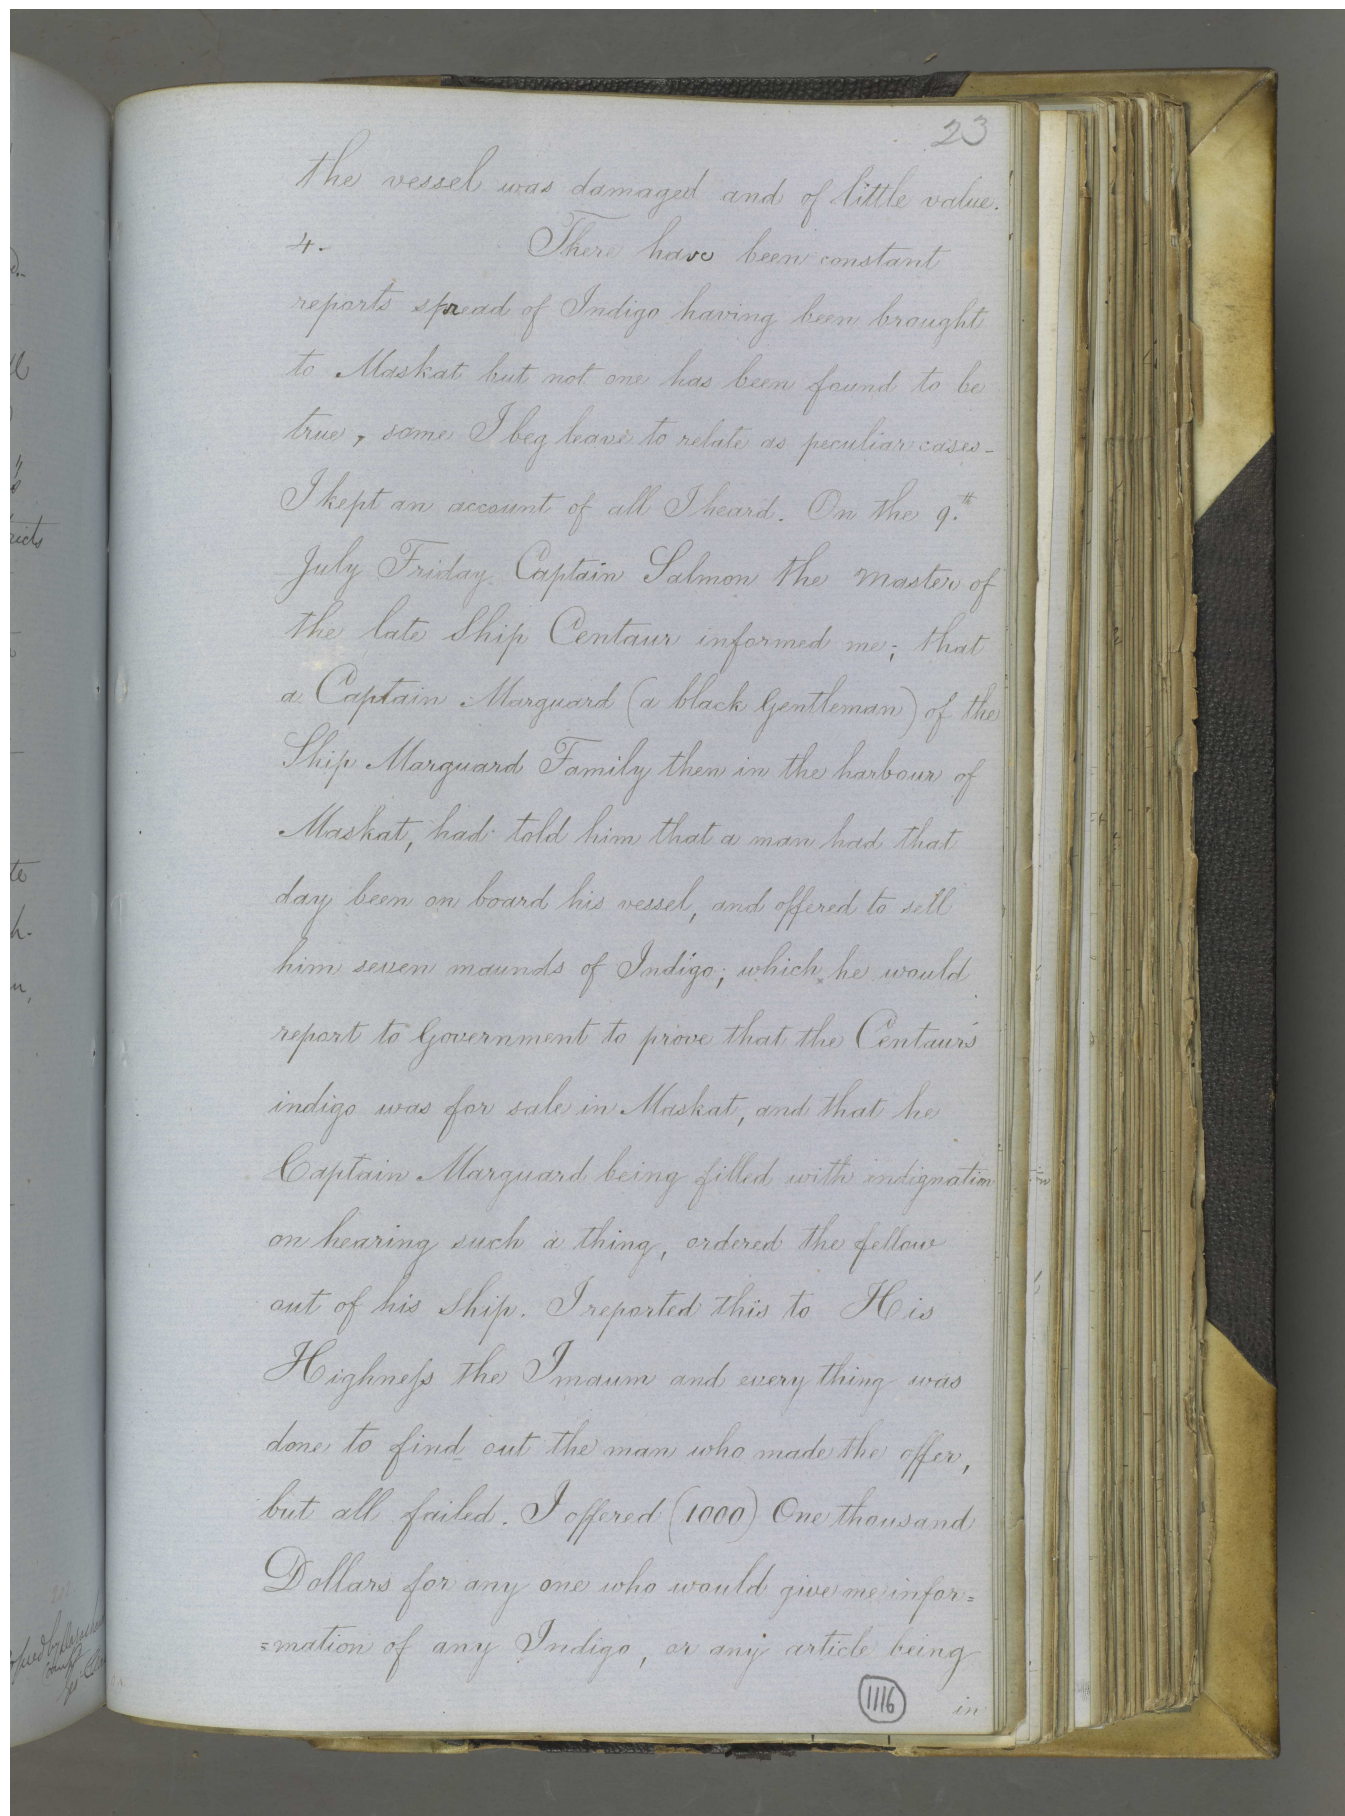 23
the vessel was damaged and of little value.
4. There have been constant
reports spread of Indigo having been brought
to Maskat but not one has been found to be
true, some I beg leave to relate as peculiar cases -
I kept an account of all I heard. On the 9.th
July Friday Captain Salmon the master of
the late Ship Centaur informed me; that
a Captain Marguard (a black Gentleman) of the
Ship Marguard Family then in the harbour of
Maskat, had told him that a man had that
day been on board his vessel, and offered to sell
him seven maunds of Indigo; which he would
report to Government to prove that the Centaur's
indigo was for sale in Maskat, and that he
Captain Marguard being filled with indignation
on hearing such a thing, ordered the fellow
out of his Ship. I reported this to His
Highness the Imaum and every thing was
done to find out the man who made the offer,
but all failed. I offered (1000) One thousand
Dollars for any one who would give me infor=
=mation of any Indigo, or any article being
in
1116